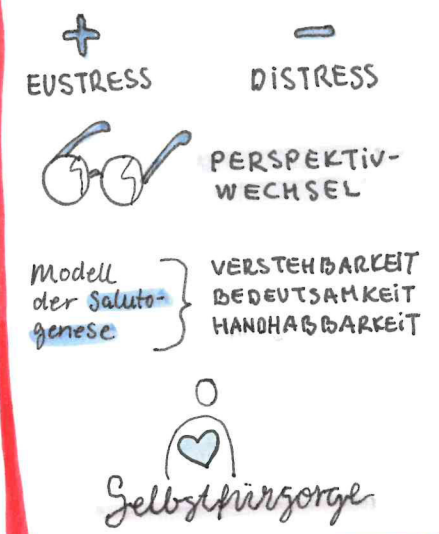 + −
EUSTRESS DISTRESS
PERSPEKTIV-
WECHSEL
Modell
der Saluto-
genese
VERSTEHBARKEIT
BEDEUTSAMKEIT
HANDHABBARKEIT
Selbstfürsorge